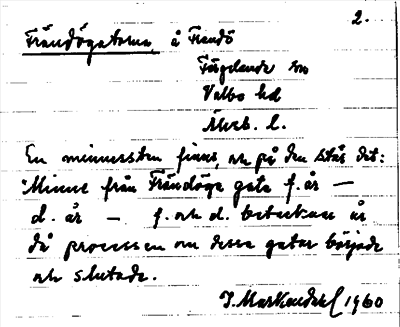 2.
Frändögatorna å Frändö
Färgelanda sn
Valbo hd
Älvsb. l.
En minnessten finns, och på den står det:
"Minne från Frändöge gata f. år —
d. år — f. och d. betecknar år
då processen om dessa gator började
och slutade.
J. Markendahl 1960